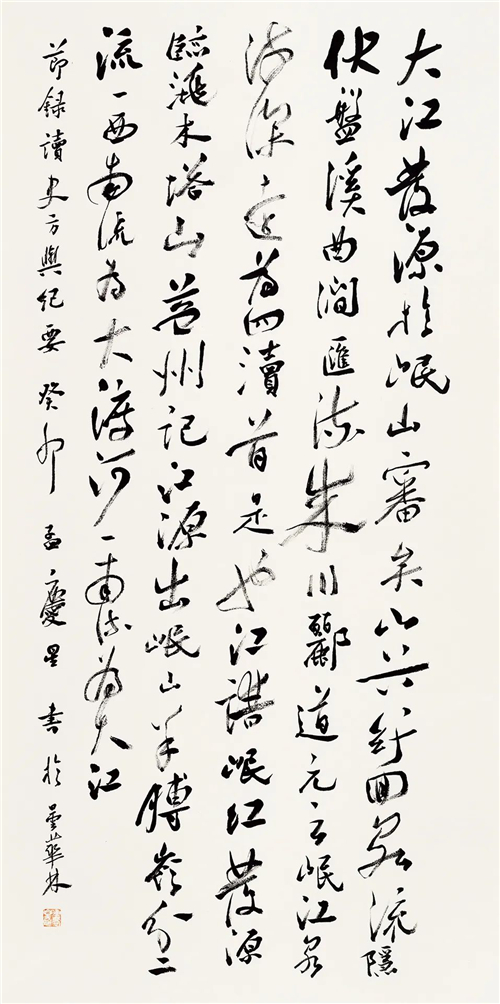 大江發源於岷山審矣山紆回泉流隱
伏盤溪曲澗匯流川酈道元云岷江泉
流深遠為四瀆首是也江譜岷江發源
臨洮木塔山益州記江源出岷山羊膊嶺分二
流一西南流為大渡河一南流為大江
節録讀史方輿紀要 癸卯 孟慶星 書於曇華林